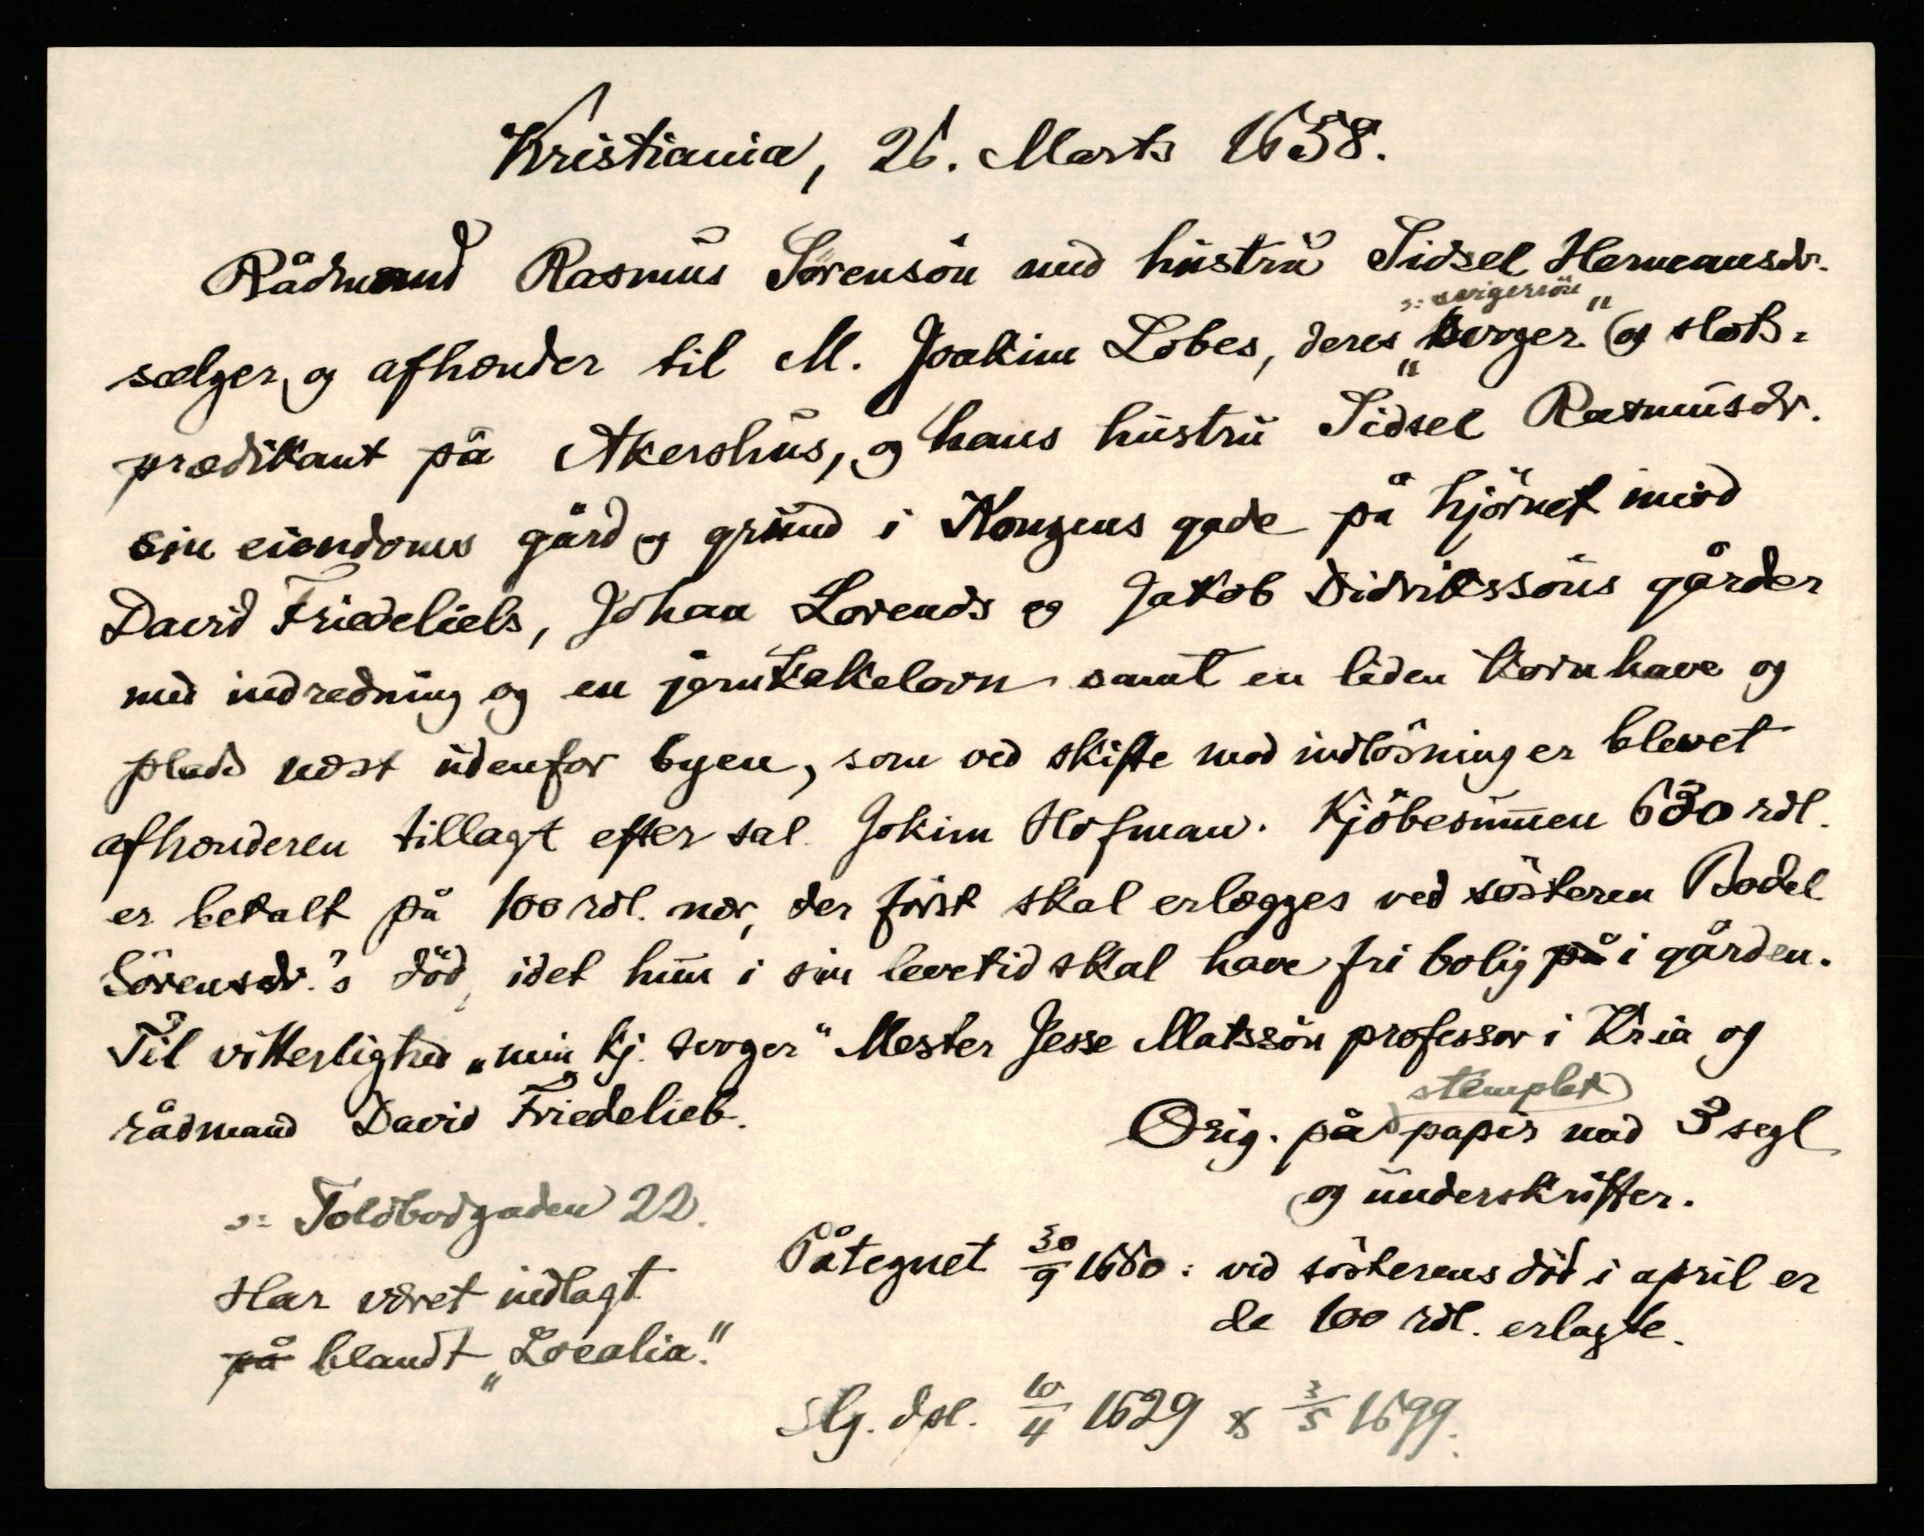 Kristiania, 26. Marts 1658.
Rådmand Rasmus Sørensøn med hustru Sidsel Hermansdr.
ɔ: svigersön
sælger og afhænder til M. Joakim Lobes, deres „svoger“ og slots-
prædikant på Akershus, og hans hustru Sidsel Rasmusdr.
sin eiendoms gård og grund i Kongens gade på hjörnet imod
David Friedeliebs, Johan Lorends og Jakob Didrikssöns gårder
med indredning og en jernkakelovn samt en liden kornhave og
plads næst udenfor byen, som ved skifte mod indlösning er blevet
afhænderen tillagt efter sal. Jokim Hofman. Kjöbesummen 630 rdl.
er betalt på 100 rdl. nær, der först skal erlægges ved sösteren Bodel
Sörensdr.'s död, idet hun i sin levetid skal have fri bolig på i gården.
Til vitterlighed „min kj. svoger“ Mester Jesse Matssön professor i Kria og
rådmand David Friedelieb.
stemplet
Orig. på papir med 3 segl
og underskrifter.
ɔ: Toldbodgaden 22.
Påtegnet 30/9 1680: ved sösterens död i april er
de 100 rdl. erlagte.
Har været indlagt
på blandt „Localia“.
Slg. dpl. 10/4 1629 & 3/5 1699.